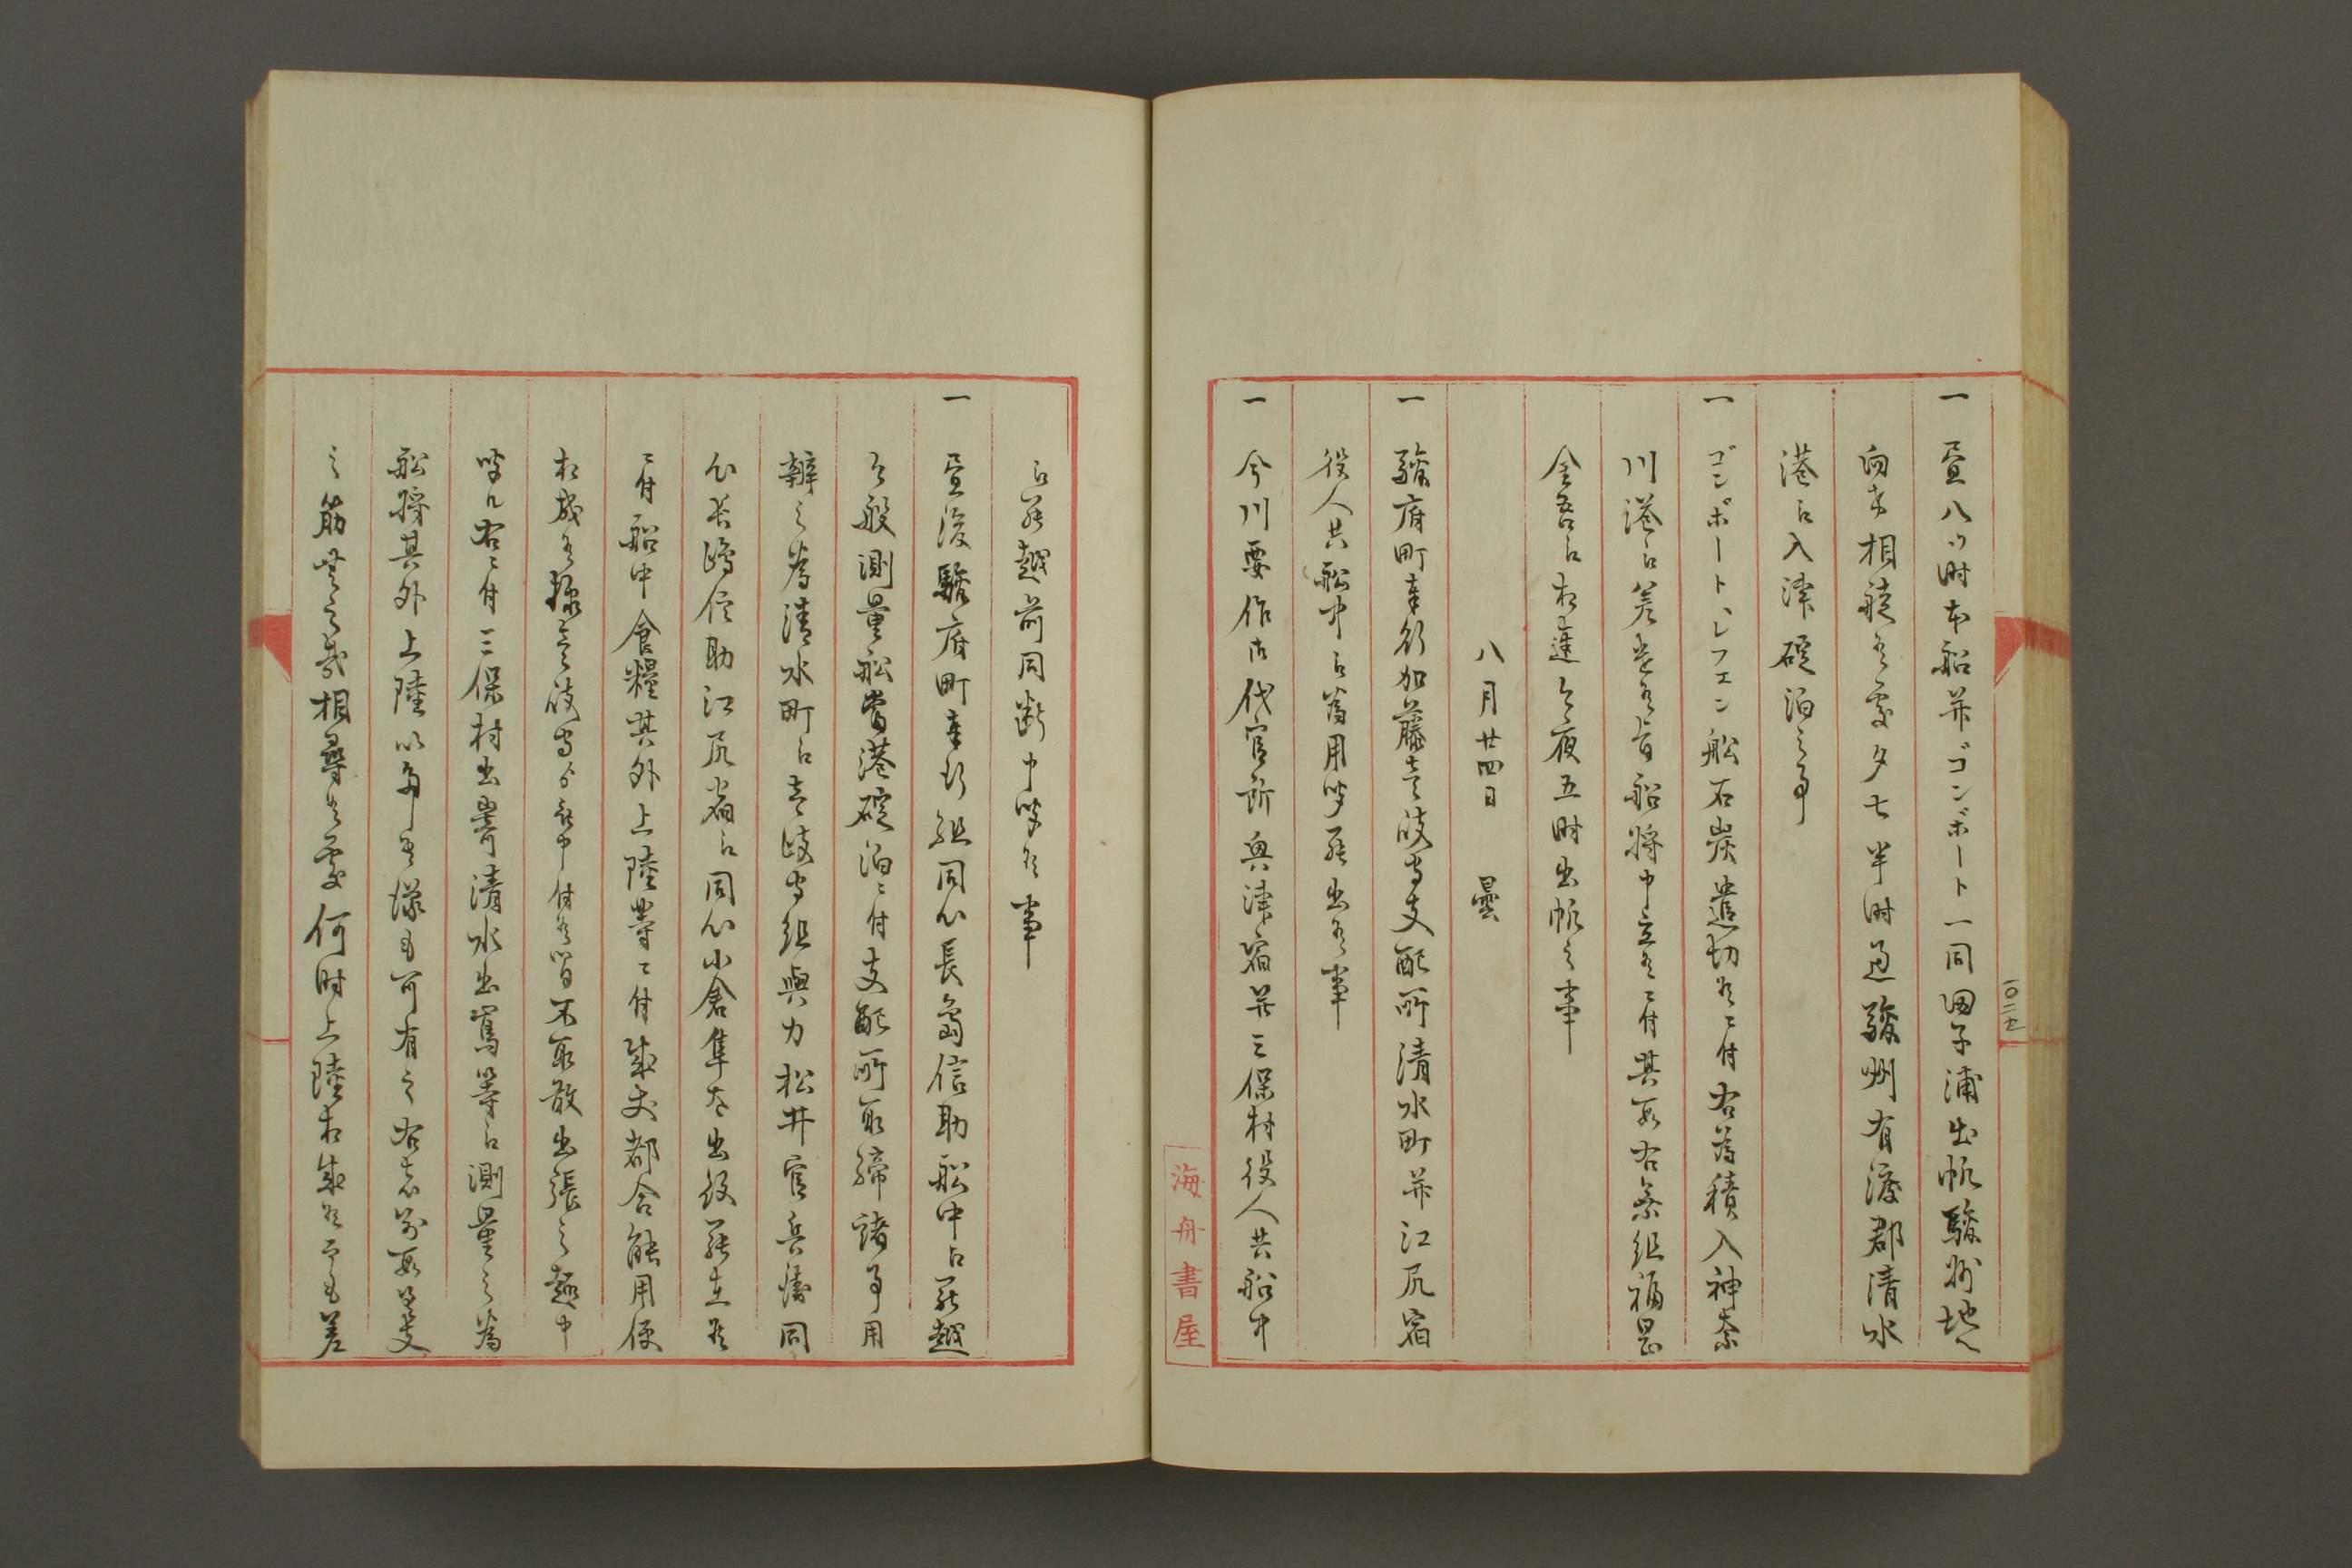 一 昼八ツ時本船并ゴンボート一同田子浦出帆駿州地へ
向ケ相廻候処夕七半時過駿州有渡郡清水
港江入津碇泊之事
一 ゴンボート、レフエン舩石炭遣切候ニ付右為積入神奈
川港江差遣候旨船将申立候ニ付其段右乗組福岡
金吾江相達今夜五時出帆之事
八月廿四日 曇
一 駿府町奉行加藤壱岐守支配所清水町并江尻宿
役人共舩中江為用聞罷出候事
一 今川要作御代官所興津宿并三保村役人共船中
海舟書屋
江罷越前同断申聞候事
一 昼後駿府町奉行組同心長嶋信助舩中江罷越
今般測量舩当港碇泊ニ付支配所取締諸事用
辨之為清水町江壱岐守組與力松井官兵衛同
心長嶋信助江尻宿江同心小倉隼太出役罷在候
ニ付船中食糧其外上陸等ニ付成丈都合能用便
相成候様壱岐守より兼申付候間不取敢出張之趣申
聞且右ニ付三保村出崎清水出嶌等江測量之為
舩将其外上陸
之筋無之哉相尋候処何時上陸相成候而も差